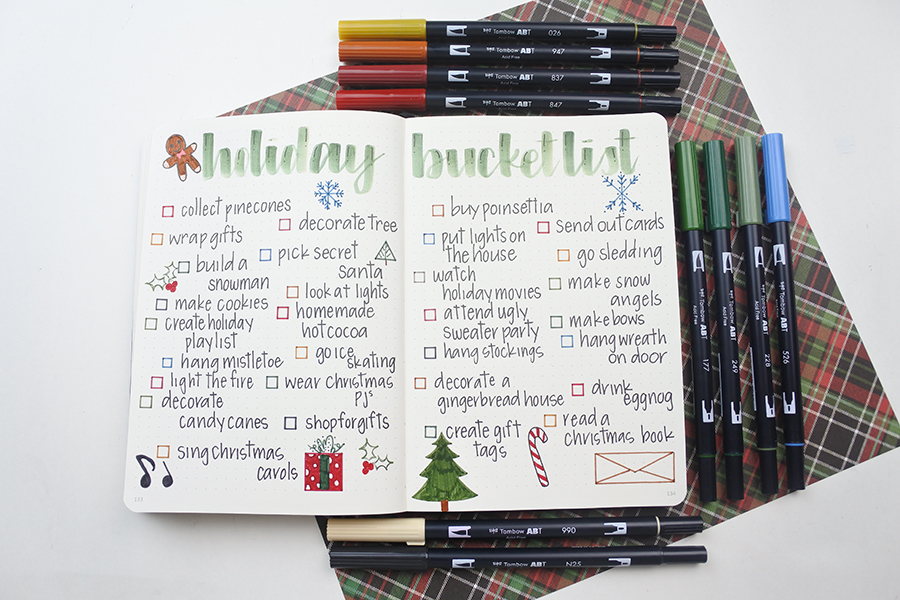 Tombow ABT 026
Tombow ABT 947
Acid Free
Tombow ABT 837
Tombow ABT 847
Acid Free
holiday bucket list
collect pinecones
decorate tree
wrap gifts
pick secret
santa
build a
snowman
look at lights
make cookies
homemade
hot cocoa
create holiday
playlist
go ice
skating
hang mistletoe
light the fire
wear christmas
PJs
decorate
candy canes
shop for gifts
sing christmas
carols
buy poinsettia
send out cards
put lights on
the house
go sledding
watch
holiday movies
make snow
angels
attend ugly
sweater party
make bows
hang stockings
hang wreath
on door
decorate a
gingerbread house
drink
eggnog
create gift
tags
read a
christmas book
Tombow ABT 177
Acid Free
Tombow ABT 249
Acid Free
Tombow ABT 228
Acid Free
Tombow ABT 526
Tombow ABT 990
Acid Free
Tombow ABT N25